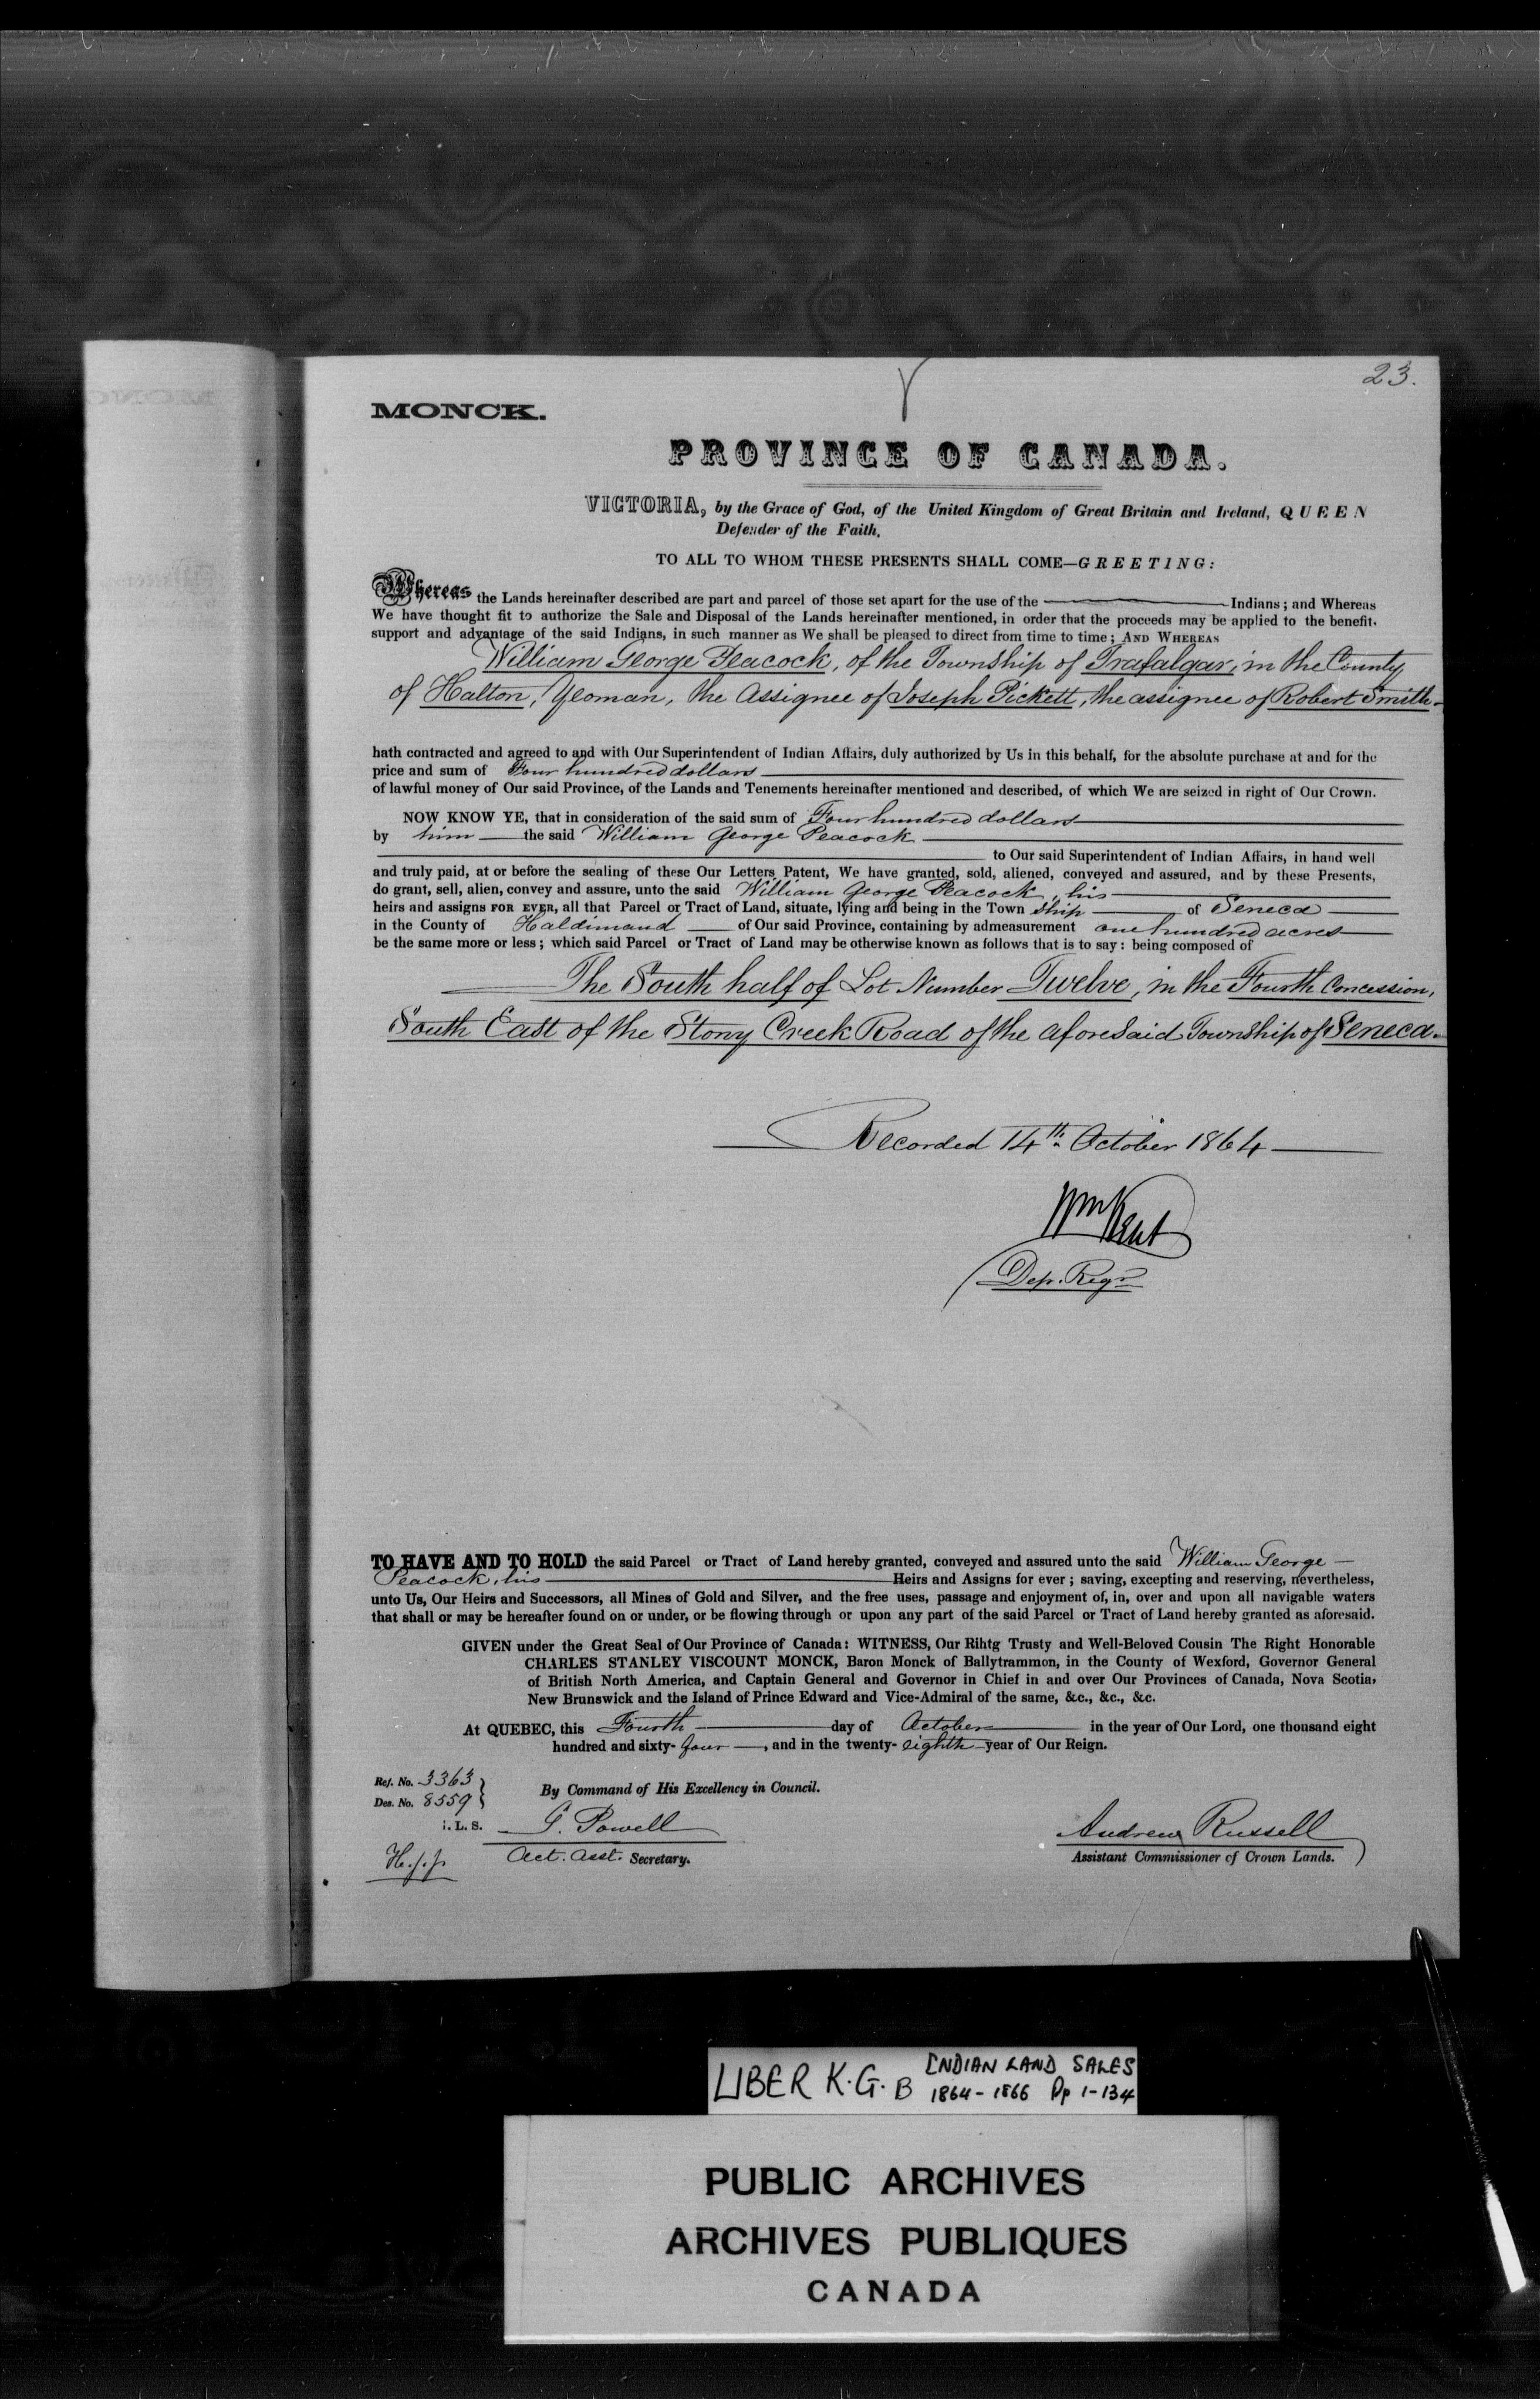 23.
MONCK.
PROVINCE OF CANADA.
VICTORIA, by the Grace of God, of the United Kingdom of Great Britain and Ireland, QUEEN
Defender of the Faith,
TO ALL TO WHOM THESE PRESENTS SHALL COME—GREETING:
Whereas the Lands hereinafter described are part and parcel of those set apart for the use of the ——— Indians; and Whereas
We have thought fit to authorize the Sale and Disposal of the Lands hereinafter mentioned, in order that the proceeds may be applied to the benefit.
support and advantage of the said Indians, in such manner as We shall be pleased to direct from time to time; AND WHEREAS
William George Peacock, of the Township of Trafalgar, in the County
of Halton, Yeoman, the Assignee of Joseph Pickett, the assignee of Robert Smith-
hath contracted and agreed to and with Our Superintendent of Indian Affairs, duly authorized by Us in this behalf, for the absolute purchase at and for the
price and sum of Four hundred dollars
of lawful money of Our said Province, of the Lands and Tenements hereinafter mentioned and described, of which We are seized in right of Our Crown.
NOW KNOW YE, that in consideration of the said sum of Four hundred dollars
by him — the said William George Peacock
to Our said Superintendent of Indian Affairs, in hand well
and truly paid, at or before the sealing of these Our Letters Patent, We have granted, sold, aliened, conveyed and assured, and by these Presents,
do grant, sell, alien, convey and assure, unto the said William George Peacock, his
heirs and assigns FOR EVER, all that Parcel or Tract of Land, situate, lying and being in the Town ship — of Seneca
in the County of Haldimand — of Our said Province, containing by admeasurement one hundred acres
be the same more or less; which said Parcel or Tract of Land may be otherwise known as follows that is to say: being composed of
The South half of Lot Number Twelve, in the Fourth Concession,
South East of the Stony Creek Road of the aforesaid Township of Seneca.
Recorded 14th October 1864
Wm Kent
Dep. Regr
TO HAVE AND TO HOLD the said Parcel or Tract of Land hereby granted, conveyed and assured unto the said William George —
Peacock, his — Heirs and Assigns for ever; saving, excepting and reserving, nevertheless,
unto Us, Our Heirs and Successors, all Mines of Gold and Silver, and the free uses, passage and enjoyment of, in, over and upon all navigable waters
that shall or may be hereafter found on or under, or be flowing through or upon any part of the said Parcel or Tract of Land hereby granted as aforesaid.
GIVEN under the Great Seal of Our Province of Canada: WITNESS, Our Rihtg Trusty and Well-Beloved Cousin The Right Honorable
CHARLES STANLEY VISCOUNT MONCK, Baron Monck of Ballytrammon, in the County of Wexford, Governor General
of British North America, and Captain General and Governor in Chief in and over Our Provinces of Canada, Nova Scotia,
New Brunswick and the Island of Prince Edward and Vice-Admiral of the same, &c., &c., &c.
At QUEBEC, this Fourth — day of October — in the year of Our Lord, one thousand eight
hundred and sixty- four —, and in the twenty- eighth year of Our Reign.
Ref. No. 3363
Des. No. 8559
By Command of His Excellency in Council.
L. S.
G. Powell
Act. Asst. Secretary.
Andrew Russell
Assistant Commissioner of Crown Lands.
LIBER K.G. B INDIAN LAND SALES
1864-1866 Pp 1-134
PUBLIC ARCHIVES
ARCHIVES PUBLIQUES
CANADA